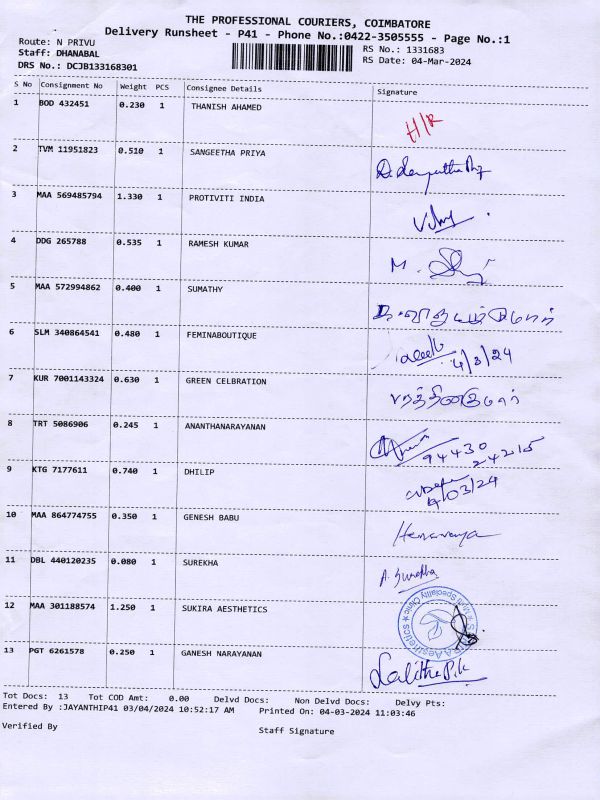 THE PROFESSIONAL COURIERS, COIMBATORE
Delivery Runsheet - P41 - Phone No.:0422-3505555 - Page No.:1
Route: N PRIVU
RS No.: 1331683
Staff: DHANABAL
RS Date: 04-Mar-2024
DRS No.: DCJB133168301
S No Consignment No Weight PCS Consignee Details Signature
1 BOD 432451 0.230 1 THANISH AHAMED H/R
2 TVM 11951823 0.510 1 SANGEETHA PRIYA
3 MAA 569485794 1.330 1 PROTIVITI INDIA
4 DDG 265788 0.535 1 RAMESH KUMAR M.
5 MAA 572994862 0.400 1 SUMATHY
6 SLM 340864541 0.480 1 FEMINABOUTIQUE 4/3/24
7 KUR 7001143324 0.630 1 GREEN CELBRATION
8 TRT 5086906 0.245 1 ANANTHANARAYANAN 94430 24215
9 KTG 7177611 0.740 1 DHILIP 4/03/24
10 MAA 864774755 0.350 1 GENESH BABU
11 DBL 440120235 0.080 1 SUREKHA A. Surekha
12 MAA 301188574 1.250 1 SUKIRA AESTHETICS
13 PGT 6261578 0.250 1 GANESH NARAYANAN Lalitha P.K
Tot Docs: 13 Tot COD Amt: 0.00 Delvd Docs: Non Delvd Docs: Delvy Pts:
Entered By :JAYANTHIP41 03/04/2024 10:52:17 AM Printed On: 04-03-2024 11:03:46
Verified By Staff Signature